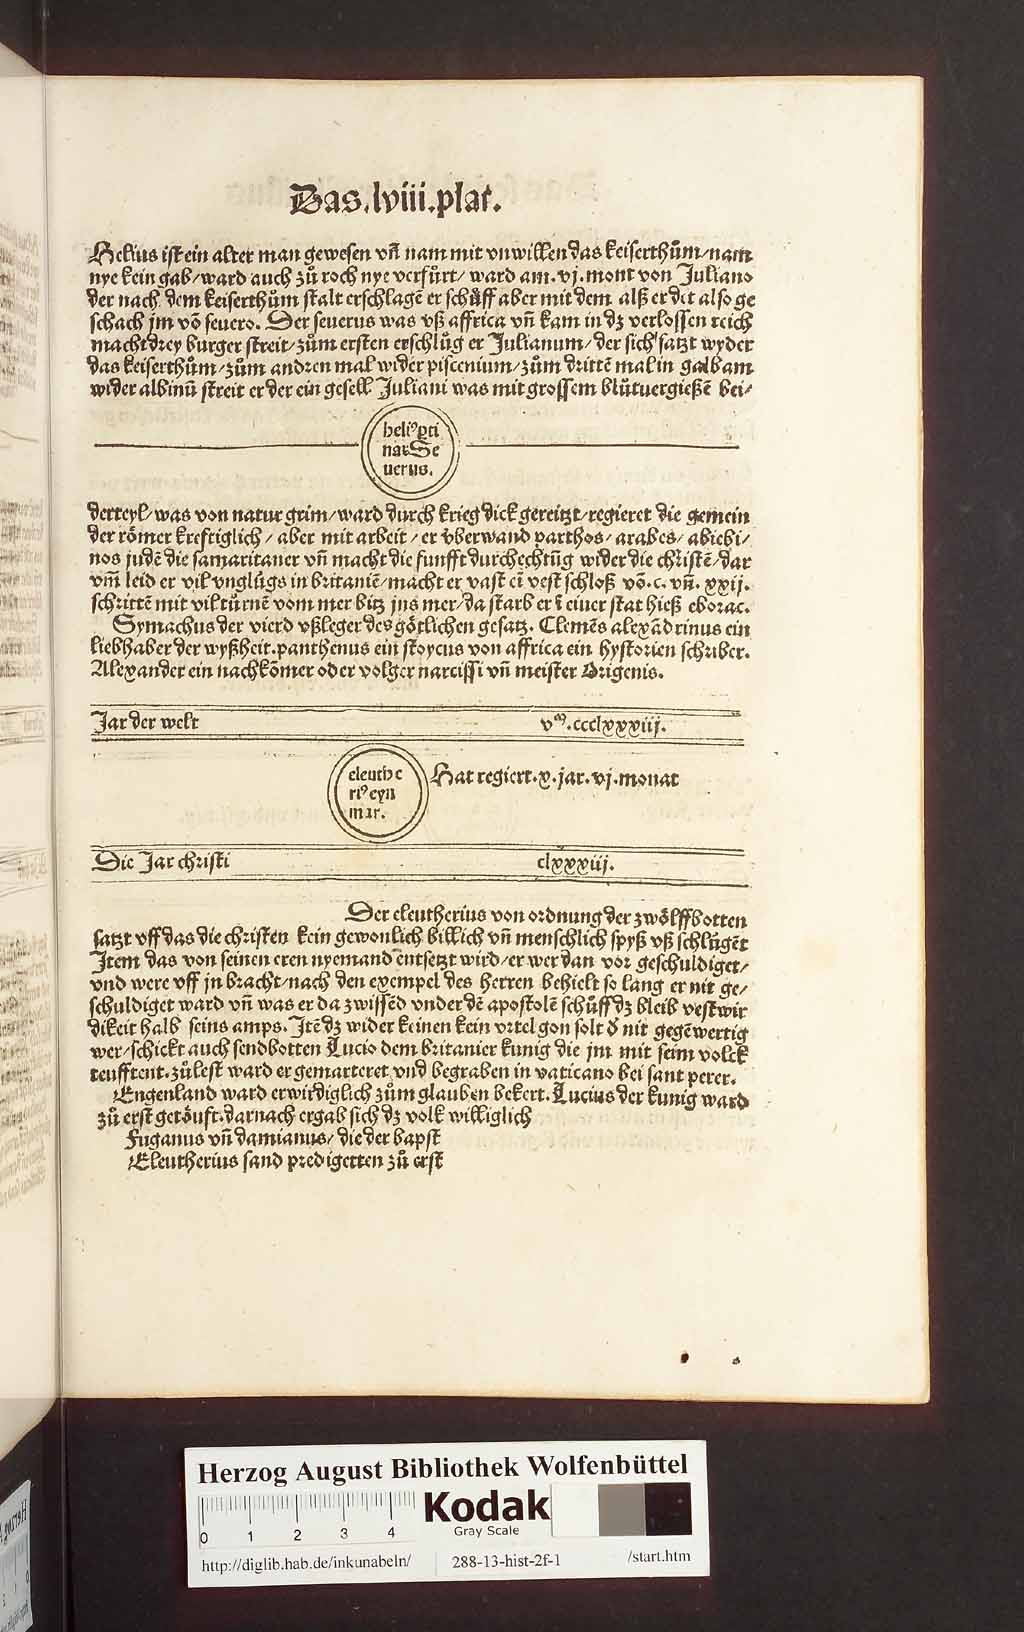 Das.lviii.plat.
Helius ist ein alter man gewesen vñ nam mit vnwillen das keiserthům/nam
nye kein gab/ward auch zů roch nye verfürt/ward am.vj.mont von Juliano
der nach dem keiserthům stalt erschlagē er schůff aber mit dem alß er det also ge
schach jm vō seuero. Der seuerus was vß affrica vñ kam in dz verlossen reich
macht drey burger streit/zům ersten erschlůg er Julianum/der sich satzt wyder
das keiserthům/zům andren mal wider piscenium/zům drittē mal in galbam
wider albinū streit er der ein gesell Juliani was mit grossem blůtuergießē bei/
heliꝰ ꝑti
nax Se
uerus.
derteyl/was von natur grim/ward durch krieg dick gereitzt/regieret die gemein
der römer kreftiglich/aber mit arbeit/er vberwand parthos/arabes/abiebi/
nos judē die samaritaner vñ macht die funfft durchechtūg wider die christē/dar
vm̄ leid er vil vnglügs in britaniē/macht er vast eī vest schloß vō.c.vñ.xxij.
schrittē mit vil tůrnē vom mer bitz jns mer/da starb er ī einer stat hieß eborac.
Symachus der vierd vßleger des götlichen gesatz. Clemēs alexādrinus ein
liebhaber der wyßheit.panthenus ein stoycus von affrica ein hystorien schriber.
Alexander ein nachkōmer oder volger narcissi vñ meister Origenis.
Jar der welt vᵐ.ccclxxxiij.
eleuthe
riꝰ eyn
mar.
Hat regiert.x.jar.vj.monat
Die Jar christi clxxxiij.
Der eleutherius von ordnung der zwölffbotten
satzt vff das die christen kein gewonlich billich vñ menschlich spyß vß schlůgēt
Item das von seinen eren nyemand entsetzt wird/er wer dan vor geschuldiget/
vnd were vff jn bracht/nach den exempel des herren behielt so lang er nit ge/
schuldiget ward vñ was er da zwissēd vnder dē apostolē schůff dz bleib vestwir
dikeit halb seins amps. Itē dz wider keinen kein vrtel gon solt d̄ nit gegēwertig
wer/schickt auch sendbotten Lucio dem britanier kunig die jm mit seim volck
teufftent.zůlest ward er gemarteret vnd begraben in vaticano bei sant peter.
Engenland ward erwirdiglich zům glauben bekert. Lucius der kunig ward
zů erst getöuft.darnach ergab sich dz volk williglich
Fuganus vñ damianus/die der bapst
Eleutherius sand predigetten zů erst
Herzog August Bibliothek Wolfenbüttel
0 1 2 3 4
Kodak
Gray Scale
http://diglib.hab.de/inkunabeln/ 288-13-hist-2f-1 /start.htm